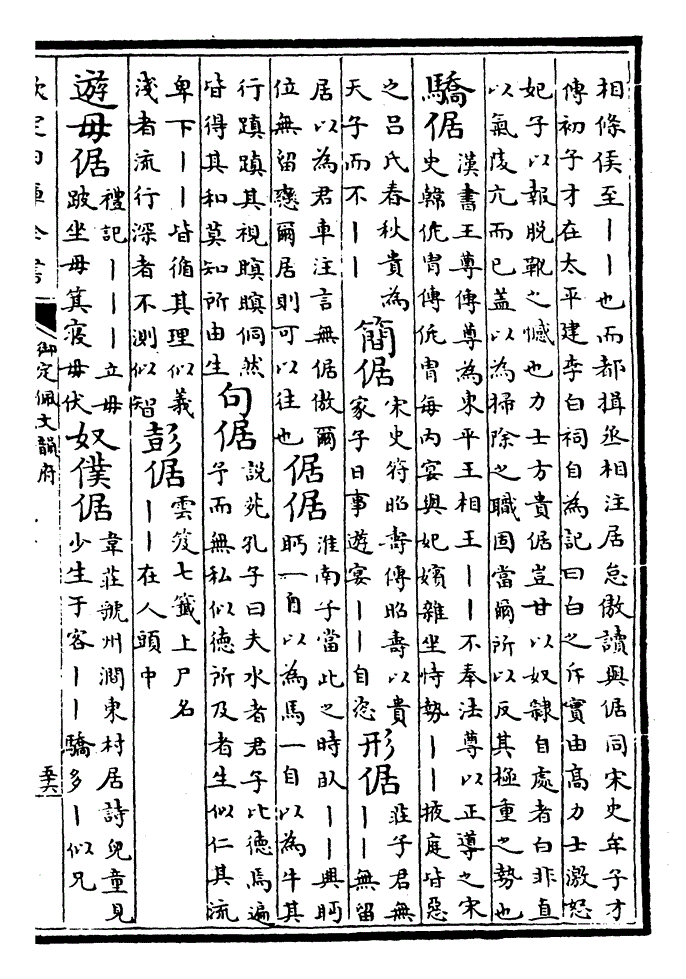 相條侯至丨丨也而都揖丞相注居怠傲讀與倨同宋史牟子才
傳初子才在太平建李白祠自為記曰白之斥實由高力士激怒
妃子以報脫靴之憾也力士方貴倨豈甘以奴隸自處者白非直
以氣陵亢而已蓋以為掃除之職固當爾所以反其極重之勢也
驕倨
漢書王尊傳尊為東平王相王丨丨不奉法尊以正導之宋
史韓侂胄傳侂胄每內宴與妃嬪雜坐恃勢丨丨掖庭皆惡
之呂氏春秋貴為
天子而不丨丨
簡倨
宋史符昭壽傳昭壽以貴
家子日事遊宴丨丨自恣
形倨
莊子君無
丨丨無留
居以為君車注言無倨傲爾
位無留戀爾居則可以往也
倨倨
淮南子當此之時臥丨丨興眄
眄一自以為馬一自以為牛其
行蹎蹎其視瞑瞑侗然
皆得其和莫知所由生
句倨
說苑孔子曰夫水者君子比德焉遍
予而無私似德所及者生似仁其流
卑下丨丨皆循其理似義
淺者流行深者不測似智
彭倨
雲笈七籤上尸名
丨丨在人頭中
遊毋倨
禮記丨丨丨立毋
跛坐毋箕寢毋伏
奴僕倨
韋莊虢州澗東村居詩兒童見
少生于客丨丨驕多丨似兄
欽定四庫全書
御定佩文韻府
五六